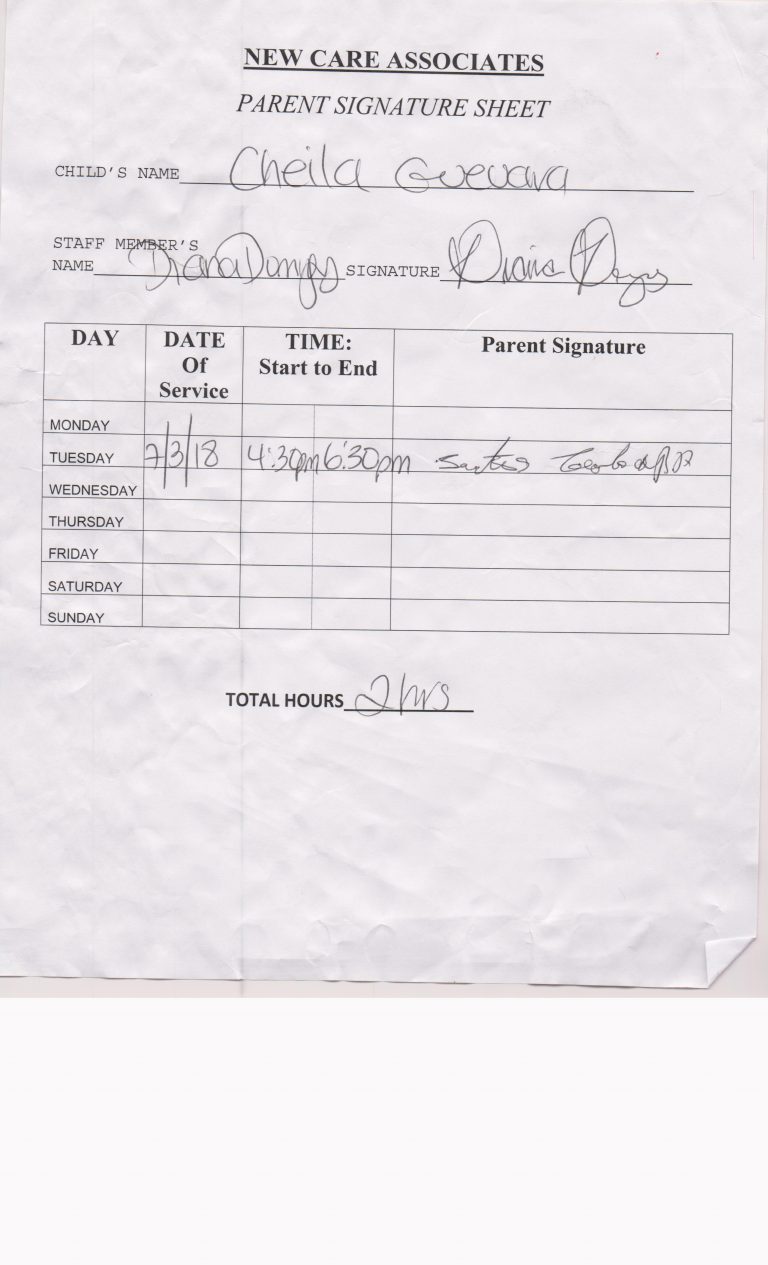 NEW CARE ASSOCIATES
PARENT SIGNATURE SHEET
CHILD'S NAME Cheila Guevara
STAFF MEMBER'S
NAME Diana SIGNATURE Diana
DAY DATE Of Service TIME: Start to End Parent Signature
MONDAY
TUESDAY 7/3/18 4:30pm 6:30pm Santos
WEDNESDAY
THURSDAY
FRIDAY
SATURDAY
SUNDAY
TOTAL HOURS 2 hrs